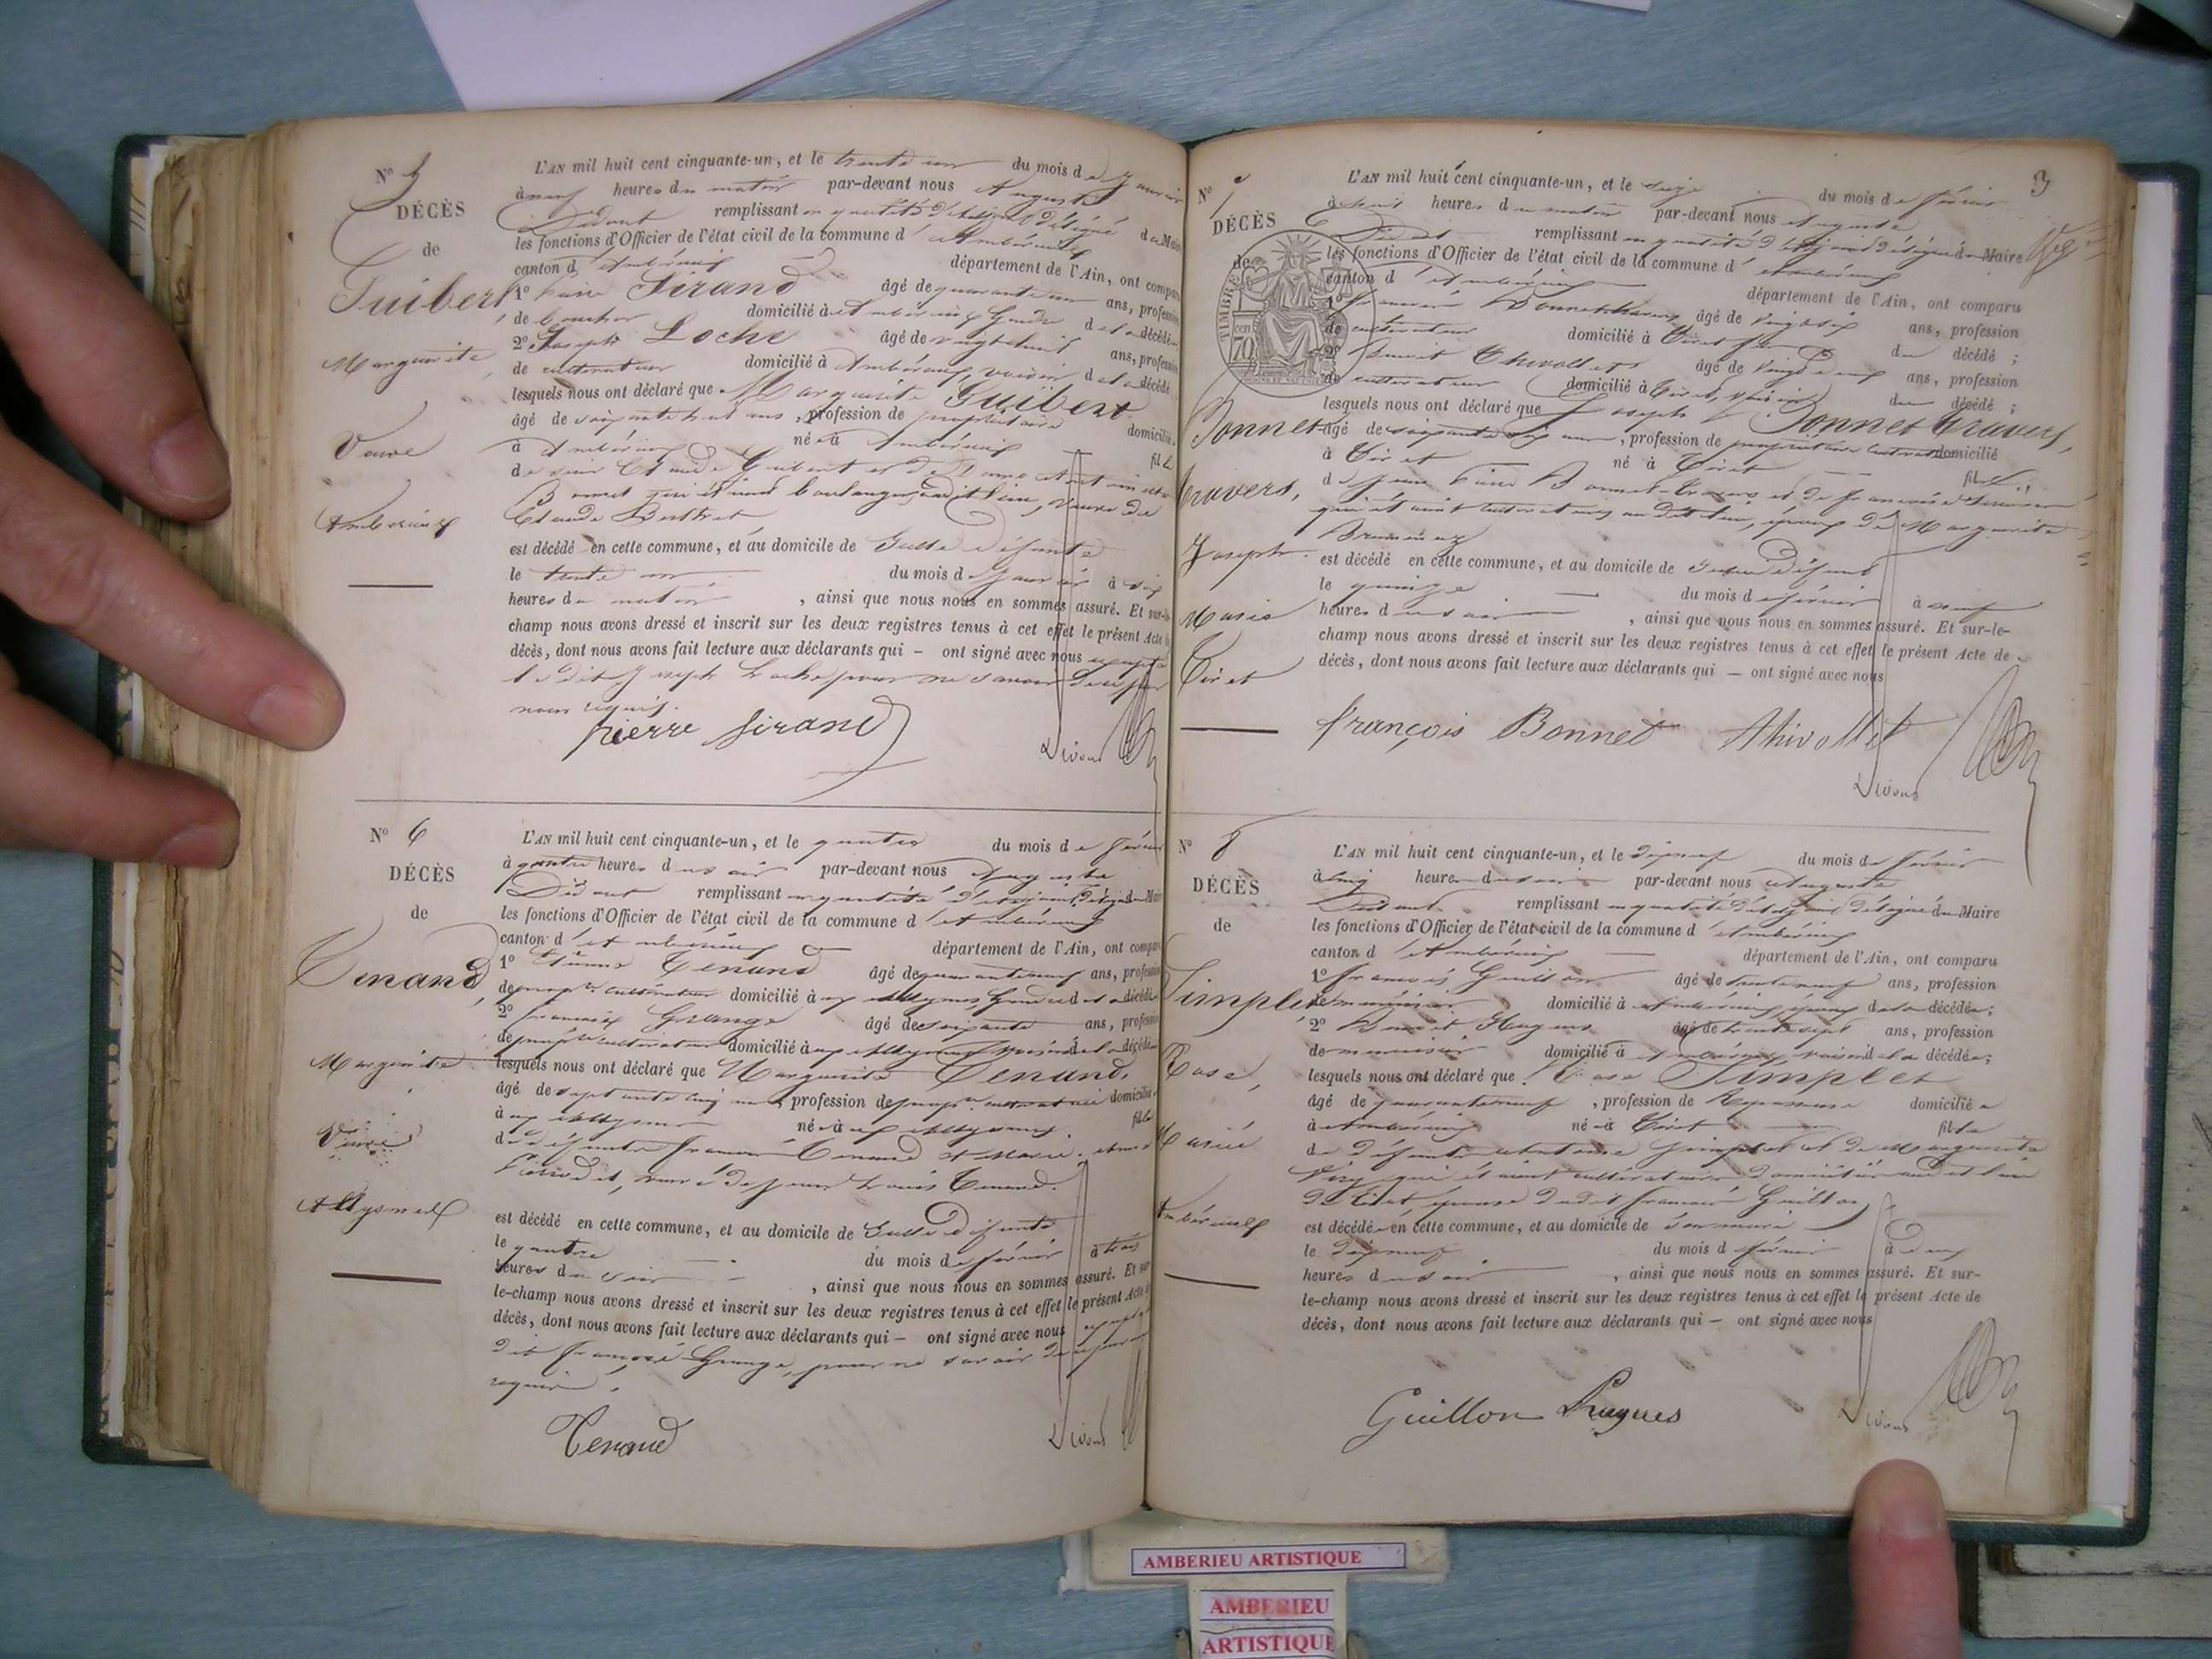 N° 5
DÉCÈS
de
Guibert
Marguerite
Veuve
Ambérieux
L'AN mil huit cent cinquante-un, et le trente un du mois de Janvier
à neuf heures du matin par-devant nous Auguste
Didout remplissant en qualité d'adjoint délégué du Maire
les fonctions d'Officier de l'état civil de la commune d'Ambérieux
canton d'Ambérieux département de l'Ain, ont comparu
1° Pierre Sirand âgé de quarante un ans, profession
de boucher domicilié à Ambérieux Gendre de la décédée
2° Joseph Loche âgé de vingt huit ans, profession
de cultivateur domicilié à Ambérieux, voisin de la décédée
lesquels nous ont déclaré que Marguerite Guibert
âgé de soixante huit ans, profession de propriétaire domiciliée
à Ambérieux née à Ambérieux fille
de Claude Guibert et de
Bonnet qui étaient boulangers audit lieu, veuve de
Claude Berthet
est décédé en cette commune, et au domicile de Ladite défunte
le trente un du mois de Janvier à six
heures du matin, ainsi que nous nous en sommes assuré. Et sur-le-
champ nous avons dressé et inscrit sur les deux registres tenus à cet effet le présent Acte de
décès, dont nous avons fait lecture aux déclarants qui – ont signé avec nous excepté
le dit Joseph Loche pour ne savoir de ce par
nous requis.
pierre sirand
Didout
N° 6
DÉCÈS
de
Tenand,
Marguerite
Veuve
L'AN mil huit cent cinquante-un, et le quatre du mois de février
à quatre heures du soir par-devant nous Auguste
Didout remplissant en qualité d'adjoint délégué du Maire
les fonctions d'Officier de l'état civil de la commune d'Ambérieux
canton d'Ambérieux département de l'Ain, ont comparu
1° Tenand âgé de quarante neuf ans, profession
de propre cultivateur domicilié à Gendre de la décédée
2° François Grange âgé de soixante ans, profession
de propre cultivateur domicilié à voisin de la décédée
lesquels nous ont déclaré que Marguerite Tenand,
âgé de septante cinq ans, profession de propre cultivatrice domiciliée
à née à fille
de défunts François Tenand et Marie
veuve de Louis Tenand.
est décédé en cette commune, et au domicile de Ladite défunte
le quatre du mois de février à trois
heures du soir, ainsi que nous nous en sommes assuré. Et sur-
le-champ nous avons dressé et inscrit sur les deux registres tenus à cet effet le présent Acte de
décès, dont nous avons fait lecture aux déclarants qui – ont signé avec nous excepté
dit François Grange, pour ne savoir de ce par
requis.
Tenand
Didout
3
N° 7
DÉCÈS
de
TIMBRE
70
Bonnet
travers,
Joseph
Marié
Tiret
L'AN mil huit cent cinquante-un, et le seize du mois de février
à huit heures du matin par-devant nous Auguste
Didout remplissant en qualité d'adjoint délégué du Maire
les fonctions d'Officier de l'état civil de la commune d'Ambérieux
canton d'Ambérieux département de l'Ain, ont comparu
1° François Bonnet travers âgé de vingt six ans, profession
de cultivateur domicilié à Tiret fils du décédé ;
2° Benoit Thivollet âgé de vingt neuf ans, profession
de cultivateur domicilié à Tiret, voisin du décédé ;
lesquels nous ont déclaré que Joseph Bonnet travers,
âgé de soixante six ans, profession de propriétaire cultivateur domicilié
à Tiret né à Tiret fils
de feu Pierre Bonnet-travers et de françoise
qui étaient cultivateurs au dit lieu, époux de Marguerite
est décédé en cette commune, et au domicile de Ludit défunt
le quinze du mois de février à neuf
heures du soir, ainsi que nous nous en sommes assuré. Et sur-le-
champ nous avons dressé et inscrit sur les deux registres tenus à cet effet le présent Acte de
décès, dont nous avons fait lecture aux déclarants qui – ont signé avec nous
françois Bonnet Thivollet
Didout
N° 8
DÉCÈS
de
Simplet,
Rose,
Mariée
Ambérieux
L'AN mil huit cent cinquante-un, et le dixneuf du mois de février
à cinq heures du soir par-devant nous Auguste
Didout remplissant en qualité d'adjoint délégué du Maire
les fonctions d'Officier de l'état civil de la commune d'Ambérieux
canton d'Ambérieux département de l'Ain, ont comparu
1° François Guillon âgé de trenteneuf ans, profession
de menuisier domicilié à Ambérieux, époux de la décédée;
2° Benoit Hugues âgé de trente sept ans, profession
de menuisier domicilié à Ambérieux, voisin de la décédée;
lesquels nous ont déclaré que Rose Simplet
âgé de quaranteneuf, profession de Repasseuse domiciliée
à Ambérieux née à Tiret fille
de défunts Antoine Simplet et de Marguerite
qui étaient cultivateurs domiciliés au dit lieu
de Tiret, épouse dudit françois Guillon
est décédée en cette commune, et au domicile de son mari
le dixneuf du mois de février à deux
heures du soir, ainsi que nous nous en sommes assuré. Et sur-
le-champ nous avons dressé et inscrit sur les deux registres tenus à cet effet le présent Acte de
décès, dont nous avons fait lecture aux déclarants qui – ont signé avec nous
Guillon Hugues
Didout
AMBERIEU ARTISTIQUE
AMBERIEU
ARTISTIQUE